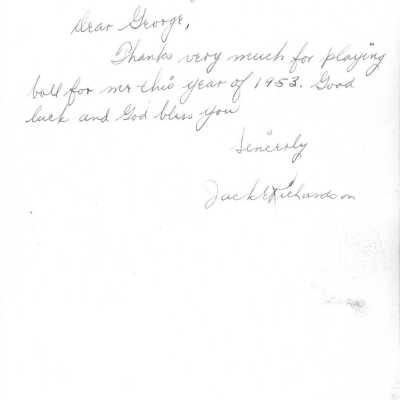 Dear George,
Thanks very much for playing
ball for me this year of 1953. Good
luck and God bless you
Sincerly
Jack E Richardson